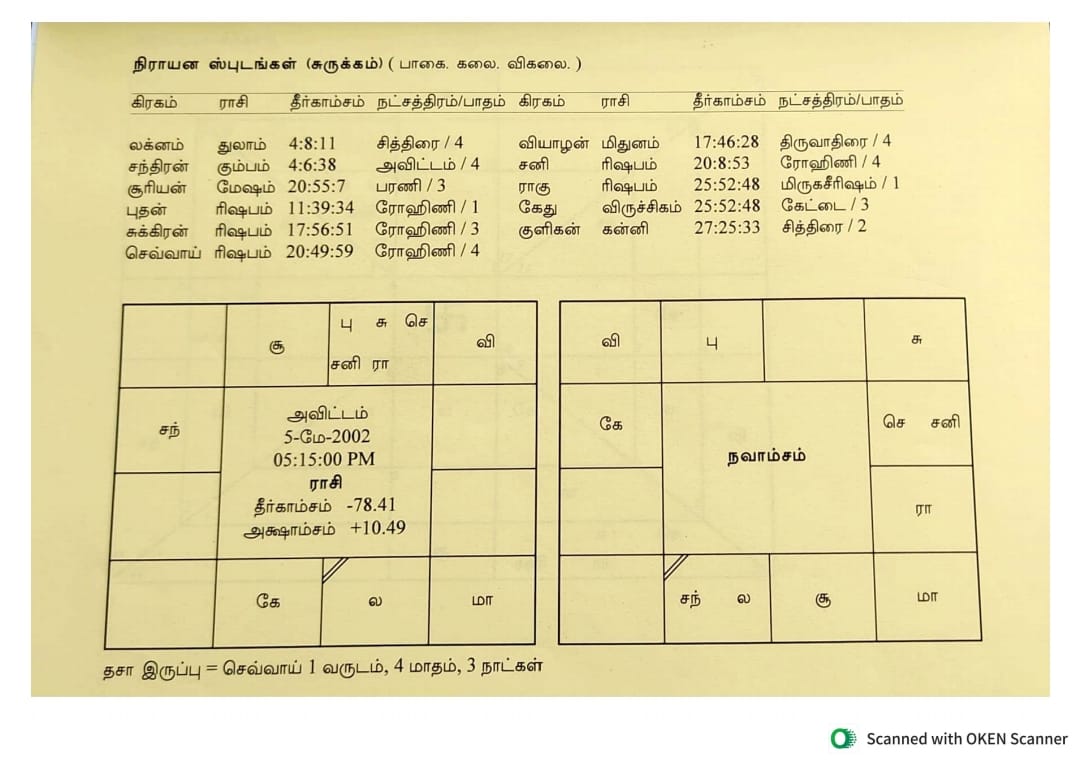 நிராயன ஸ்புடங்கள் (சுருக்கம்) ( பாகை. கலை. விகலை. )
கிரகம் ராசி தீர்காம்சம் நட்சத்திரம்/பாதம் கிரகம் ராசி தீர்காம்சம் நட்சத்திரம்/பாதம்
லக்னம் துலாம் 4:8:11 சித்திரை / 4 வியாழன் மிதுனம் 17:46:28 திருவாதிரை / 4
சந்திரன் கும்பம் 4:6:38 அவிட்டம் / 4 சனி ரிஷபம் 20:8:53 ரோஹிணி / 4
சூரியன் மேஷம் 20:55:7 பரணி / 3 ராகு ரிஷபம் 25:52:48 மிருகசீரிஷம் / 1
புதன் ரிஷபம் 11:39:34 ரோஹிணி / 1 கேது விருச்சிகம் 25:52:48 கேட்டை / 3
சுக்கிரன் ரிஷபம் 17:56:51 ரோஹிணி / 3 குளிகன் கன்னி 27:25:33 சித்திரை / 2
செவ்வாய் ரிஷபம் 20:49:59 ரோஹிணி / 4
சூ
பு சு செ
சனி ரா
வி
சந்
அவிட்டம்
5-மே-2002
05:15:00 PM
ராசி
தீர்காம்சம் -78.41
அக்ஷாம்சம் +10.49
கே
ல
மா
வி
பு
சு
கே
செ சனி
நவாம்சம்
ரா
சந் ல
சூ
மா
தசா இருப்பு = செவ்வாய் 1 வருடம், 4 மாதம், 3 நாட்கள்
Scanned with OKEN Scanner